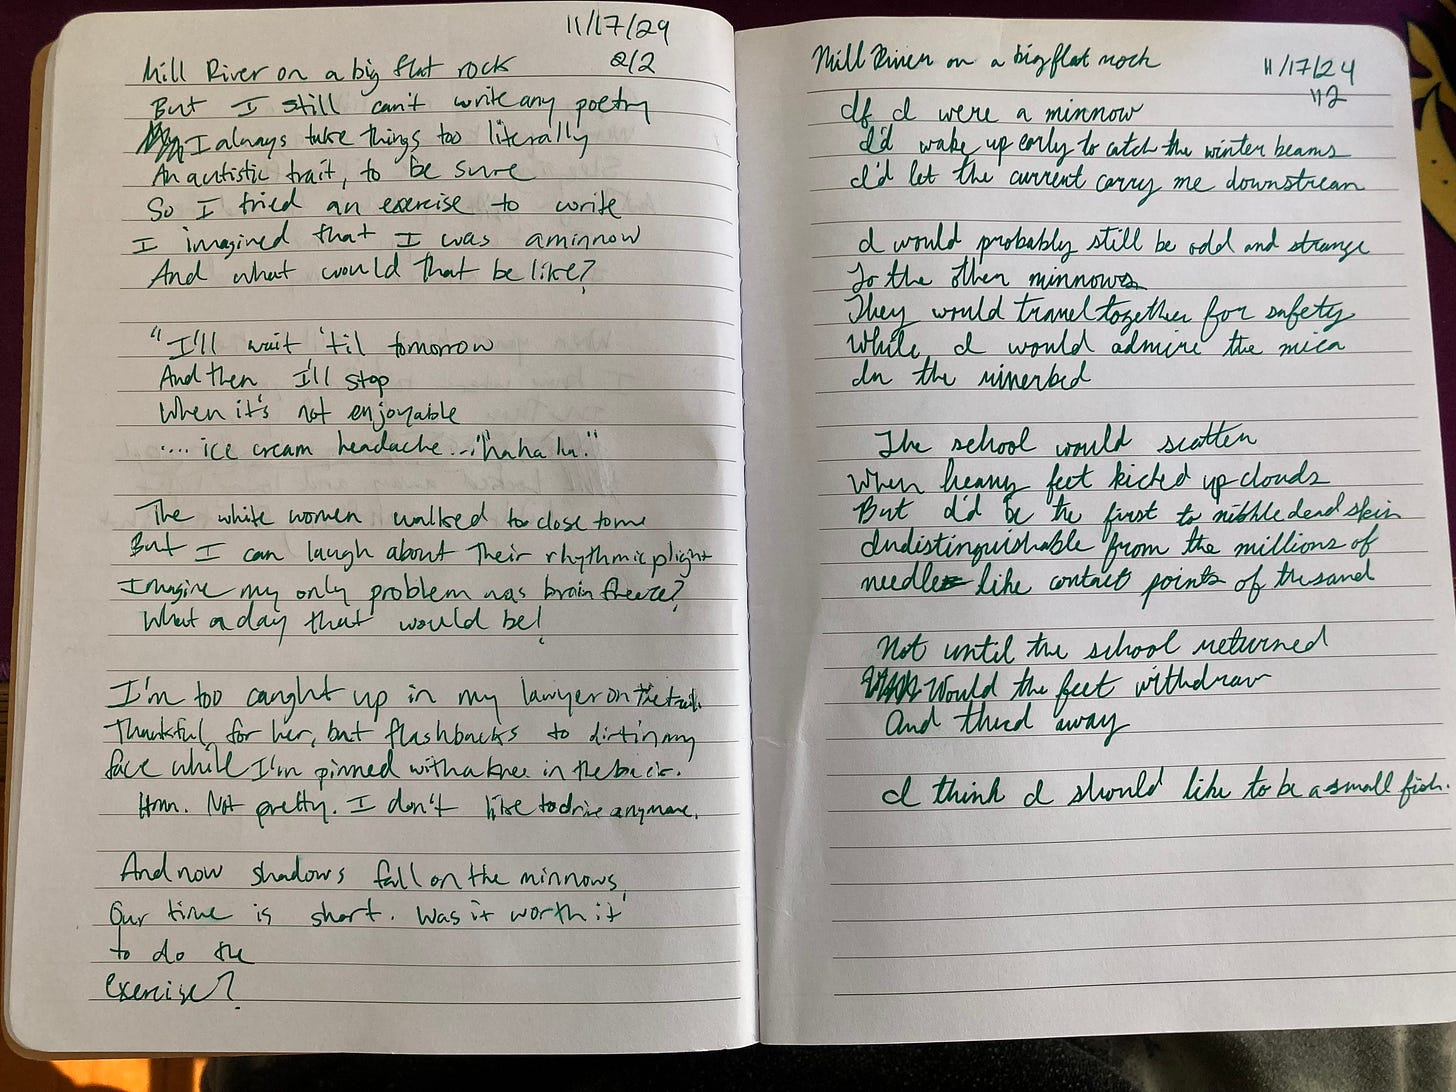 11/17/24
2/2
Mill River on a big flat rock
But I still can't write any poetry
I always take things too literally
An autistic trait, to be sure
So I tried an exercise to write
I imagined that I was a minnow
And what would that be like?
"I'll wait 'til tomorrow
And then I'll stop
When it's not enjoyable
.... ice cream headache..." "haha ha."
The white women walked too close to me
But I can laugh about their rhythmic plight
Imagine my only problem was brain freeze?
What a day that would be!
I'm too caught up in my lawyer on the trail.
Thankful, for her, but flashbacks to dirt in my
face while I'm pinned with a knee in the back.
Hmm. Not pretty. I don't like to drive anymore.
And now shadows fall on the minnows,
Our time is short. Was it worth it
to do the
exercise?
Mill River on a big flat rock
11/17/24
1/2
If I were a minnow
I'd wake up early to catch the winter beams
I'd let the current carry me downstream
I would probably still be odd and strange
To the other minnows
They would travel together for safety
While I would admire the mica
In the riverbed
The school would scatter
When heavy feet kicked up clouds
But I'd be the first to nibble dead skin
Indistinguishable from the millions of
needle like contact points of the sand
Not until the school returned
Would the feet withdraw
And thud away
I think I should like to be a small fish.